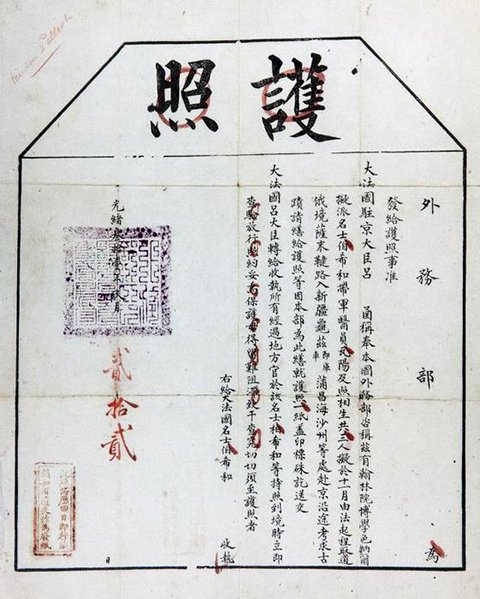 護照
外務部 為
發給護照事准
大法國駐京大臣呂 函稱奉本國外務部咨稱茲有翰林院博學色納爾
擬派名士伯希和帶軍醫員瓦陽及照相生共三人擬於十一月由法起程取道
俄境薩末鞬路入新疆龜茲即庫車蒲昌海沙州等處赴京沿途考求古
蹟請繕給護照等因本部為此繕就護照一紙蓋印標硃訖送交
大法國呂大臣轉給收執所有經過地方官於該名士伯希和等持照到境時立即
查驗放行照約妥為保護毋得留難阻滯致干查究切切須至護照者
右給大法國名士伯希和 收執
光緒叁拾壹年 月 貳拾貳 日